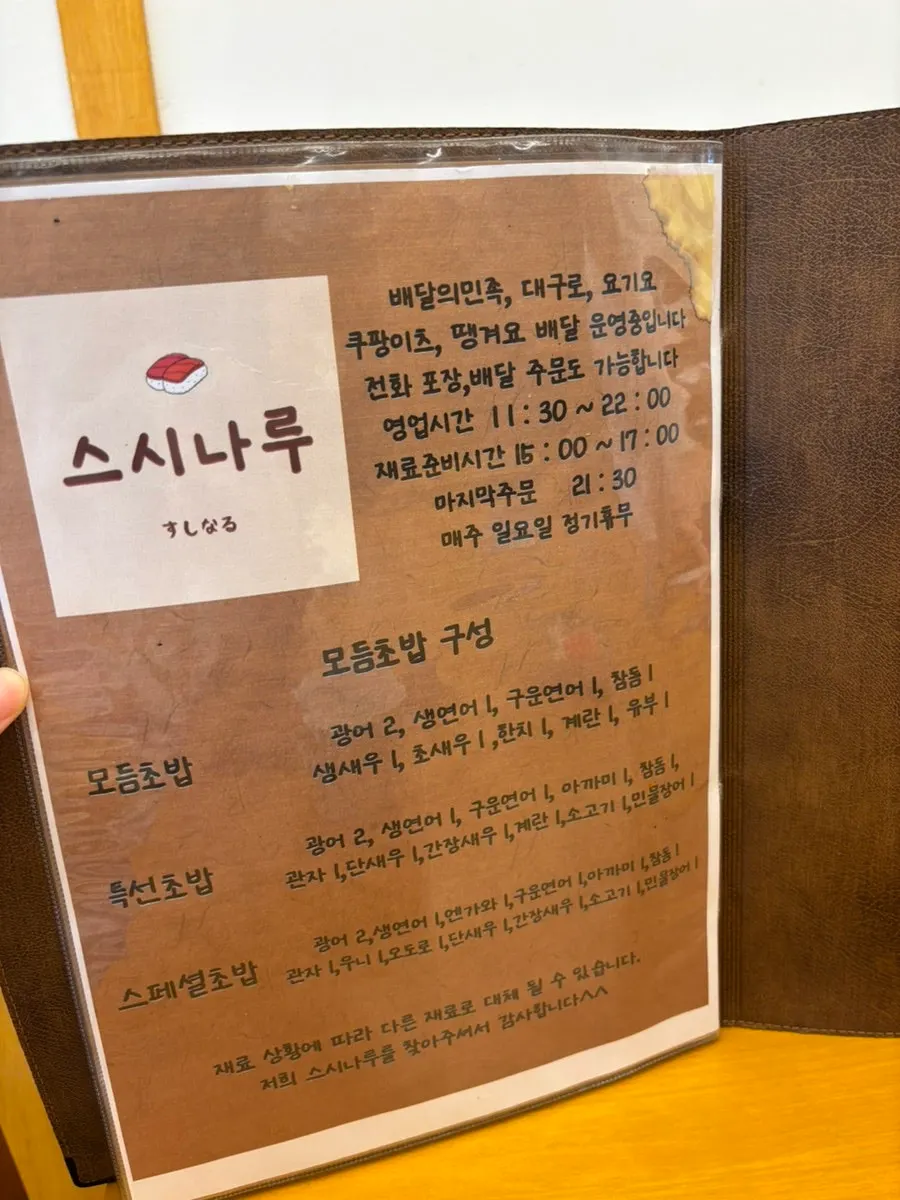 배달의민족, 대구로, 요기요
쿠팡이츠, 땡겨요 배달 운영중입니다
전화 포장,배달 주문도 가능합니다
영업시간 11 : 30 ~ 22 : 00
재료준비시간 15 : 00 ~ 17 : 00
마지막주문 21 : 30
매주 일요일 정기휴무
스시나루
すしなる
모듬초밥 구성
모듬초밥
광어 2, 생연어 1, 구운연어 1, 참돔 1
생새우 1, 초새우 1 ,한치 1, 계란 1, 유부 1
특선초밥
광어 2, 생연어 1, 구운연어 1, 아까미 1, 참돔 1,
관자 1,단새우 1,간장새우 1,계란 1,소고기 1,민물장어 1
스페셜초밥
광어 2,생연어 1,엔가와 1,구운연어 1,아까미 1,참돔 1
관자 1,우니 1,오도로 1,단새우 1,간장새우 1,소고기 1,민물장어 1
재료 상황에 따라 다른 재료로 대체 될 수 있습니다.
저희 스시나루를 찾아주셔서 감사합니다^^